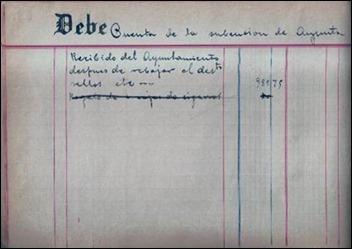 Debe Cuenta de la subencion de Ayunta
Recibido del Ayuntamiento
despues de rebajar el dest
sellos etc 989 75
Regalo de 1 caja de cigarros